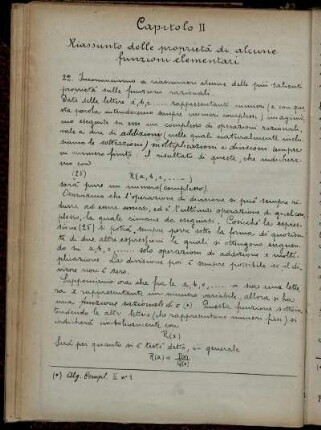 Capitolo II
Riassunto delle proprietà di alcune
funzioni elementari
22. Incominciamo a riassumere alcune delle più salienti
proprietà sulle funzioni razionali.
Date delle lettere a, b, c, .... rappresentanti numeri (e con que
sta parola intenderemo sempre numeri complessi) immagini
amo eseguite su esse un complesso di operazioni razionali,
vale a dire di addizioni (nelle quali naturalmente inclu
diamo le sottrazioni) moltiplicazioni e divisioni sempre
in numero finito. Il risultato di queste, che indichere
mo con
(25) R(a, b, c, ....)
sarà pure un numero (complesso).
Osserviamo che l'operazione di divisione si può sempre ri
durre ad essere unica, ed è l'ultima operazione di qual com
plesso, la quale rimane da eseguire. Cosicchè l'es
sione (25) si potrà sempre porre sotto la forma di quozien
te di due altre espressioni le quali si ottengono eseguen
do su a, b, c, .... solo operazioni di addizione e molti
plicazione. La divisione poi è sempre possibile se il di
visore non è zero.
Supponiamo ora che fra le a, b, c, .... vi sia una lette
ra z rappresentante un numero variabile, allora si ha
una funzione razionale di z (*). Questa funzione sottoin
tendendo le altre lettere (che rappresentano numeri fissi) si
indicherà simbolicamente con
R(z)
Sarà per quanto si è testè detto, in generale
R(z) =
(*) Alg. Compl. II n° 1